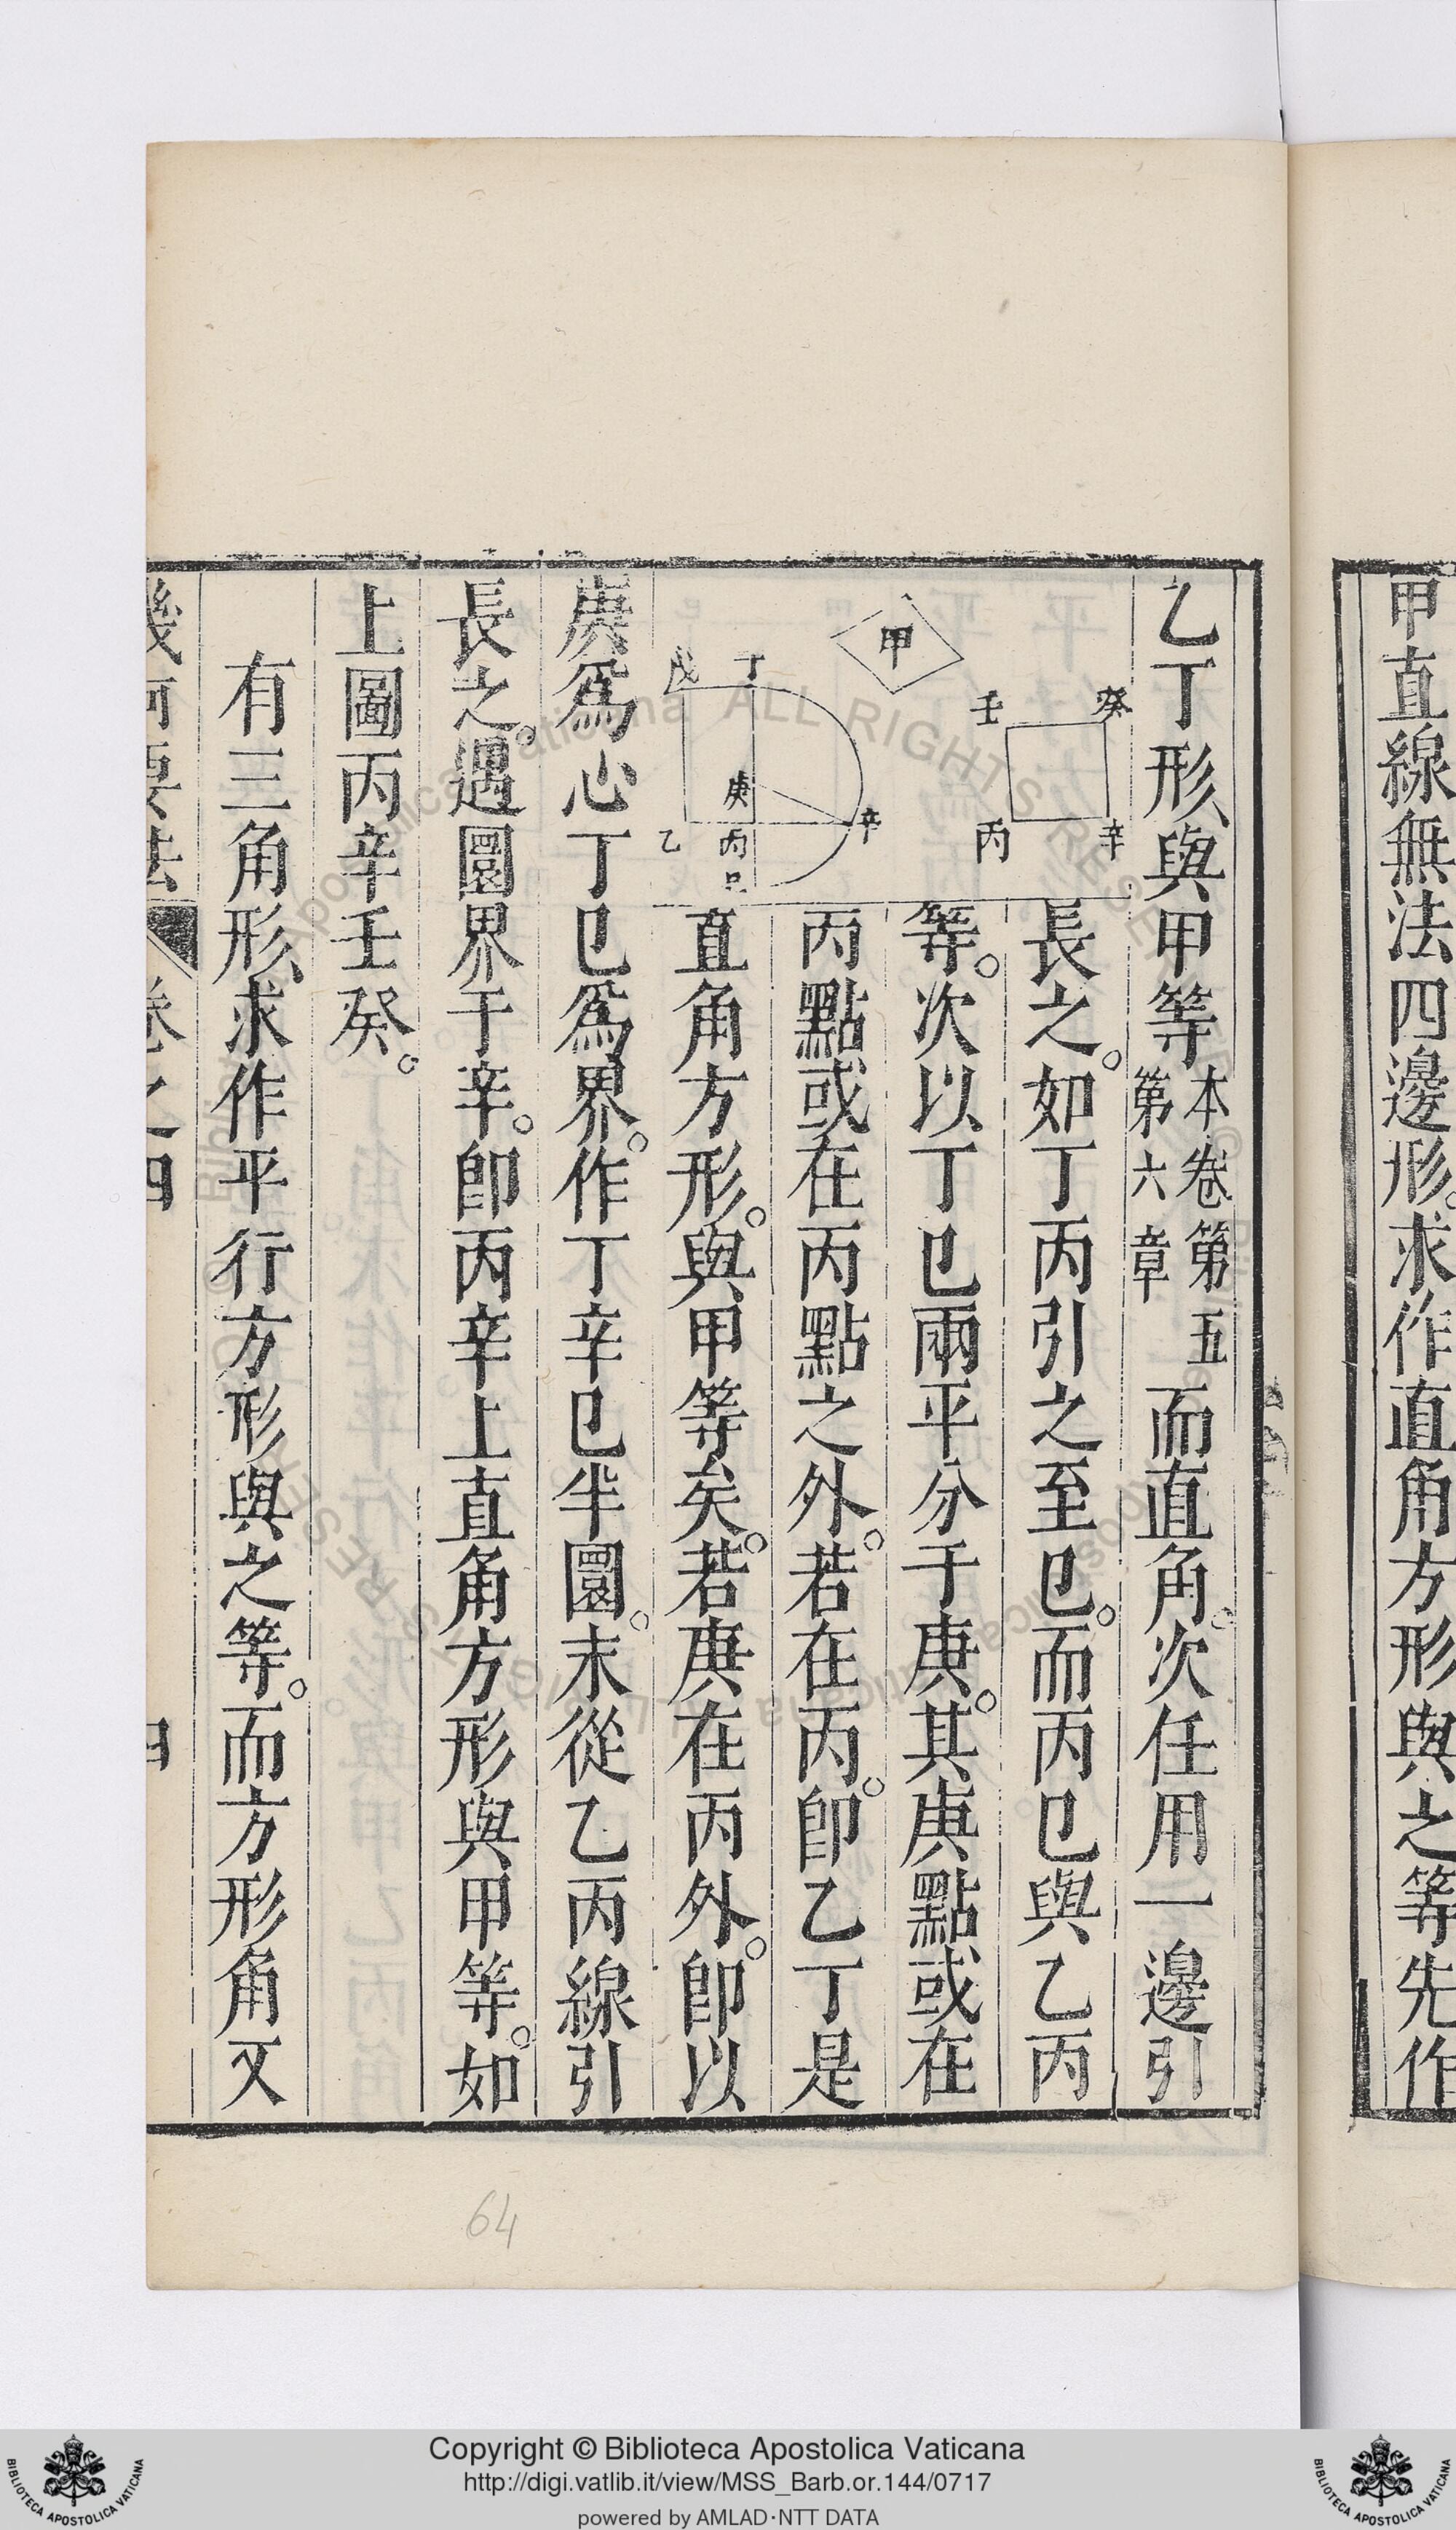 甲直線無法四邊形。求作直角方形與之等先作
乙丁形、與甲等本卷第五第六章而直角。次任用一邊引
長之。如丁丙引之至巳。而丙巳與乙丙
等。次以丁巳兩平分于庚。其庚點或在
丙點或在丙點之外。若在丙。卽乙丁是
直角方形。與甲等矣。若庚在丙外。卽以
甲
癸
壬
辛
丙
丁
戊
庚
辛
乙
丙
巳
庚爲心丁巳爲界。作丁辛巳半圜。末從乙丙線引
長之。遇圜界于辛。卽丙辛上直角方形與甲等。如
上圖丙辛壬癸。
有三角形、求作平行方形與之等。而方形角又
幾何要法 卷之四 四
64
Copyright © Biblioteca Apostolica Vaticana
http://digi.vatlib.it/view/MSS_Barb.or.144/0717
powered by AMLAD·NTT DATA
BIBLIOTECA APOSTOLICA VATICANA
BIBLIOTECA APOSTOLICA VATICANA